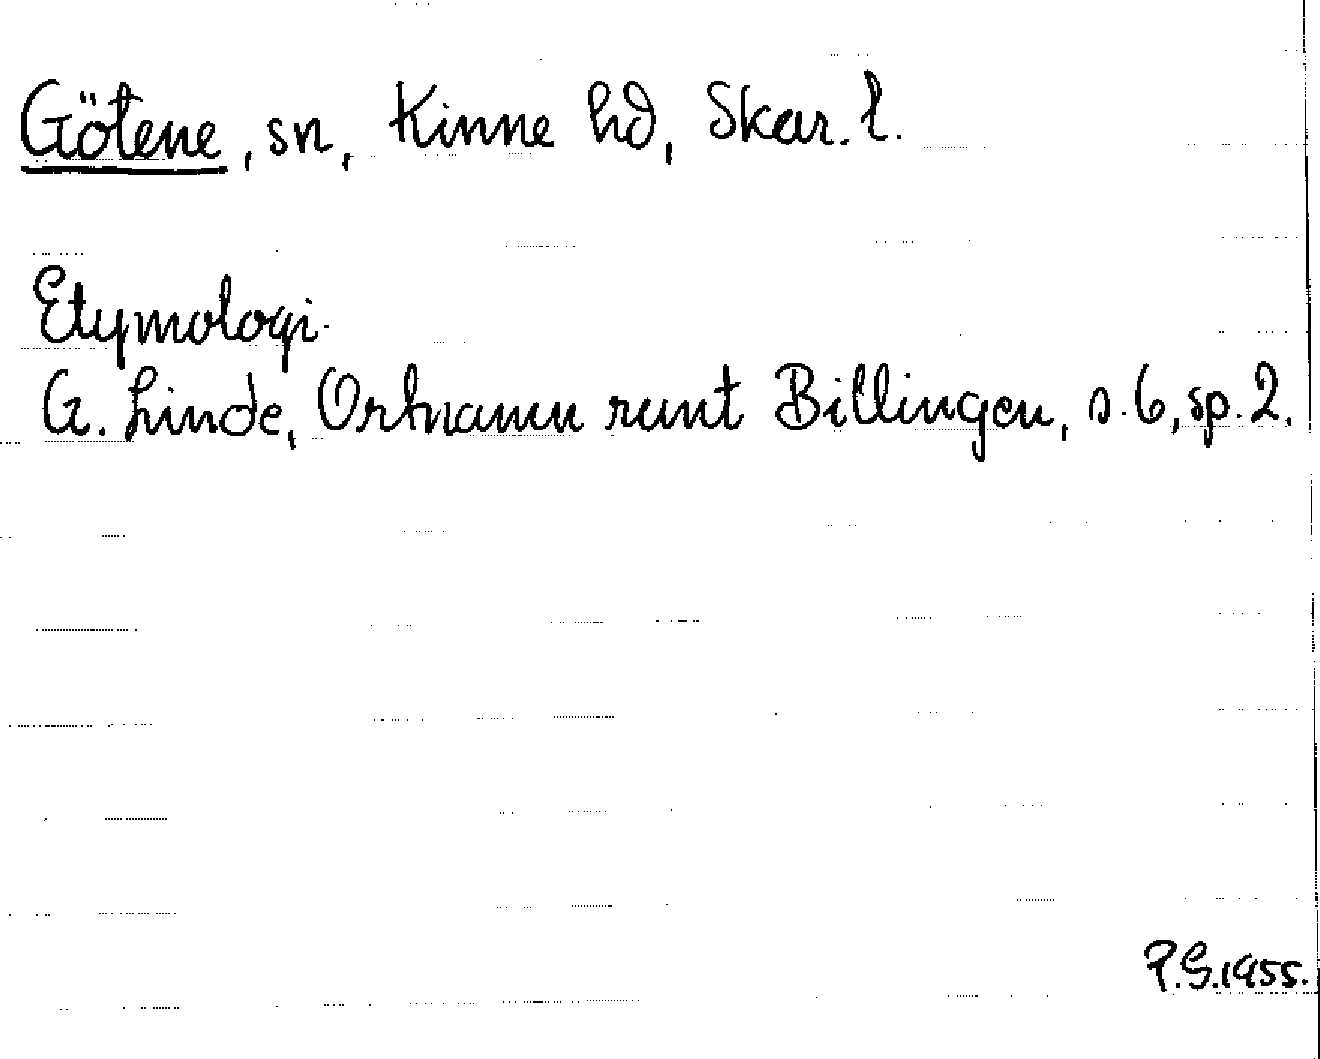 Götene, sn, Kinne hd, Skar. l.
Etymologi.
G. Linde, Ortnamn runt Billingen, s. 6, sp. 2.
P.G. 1955.